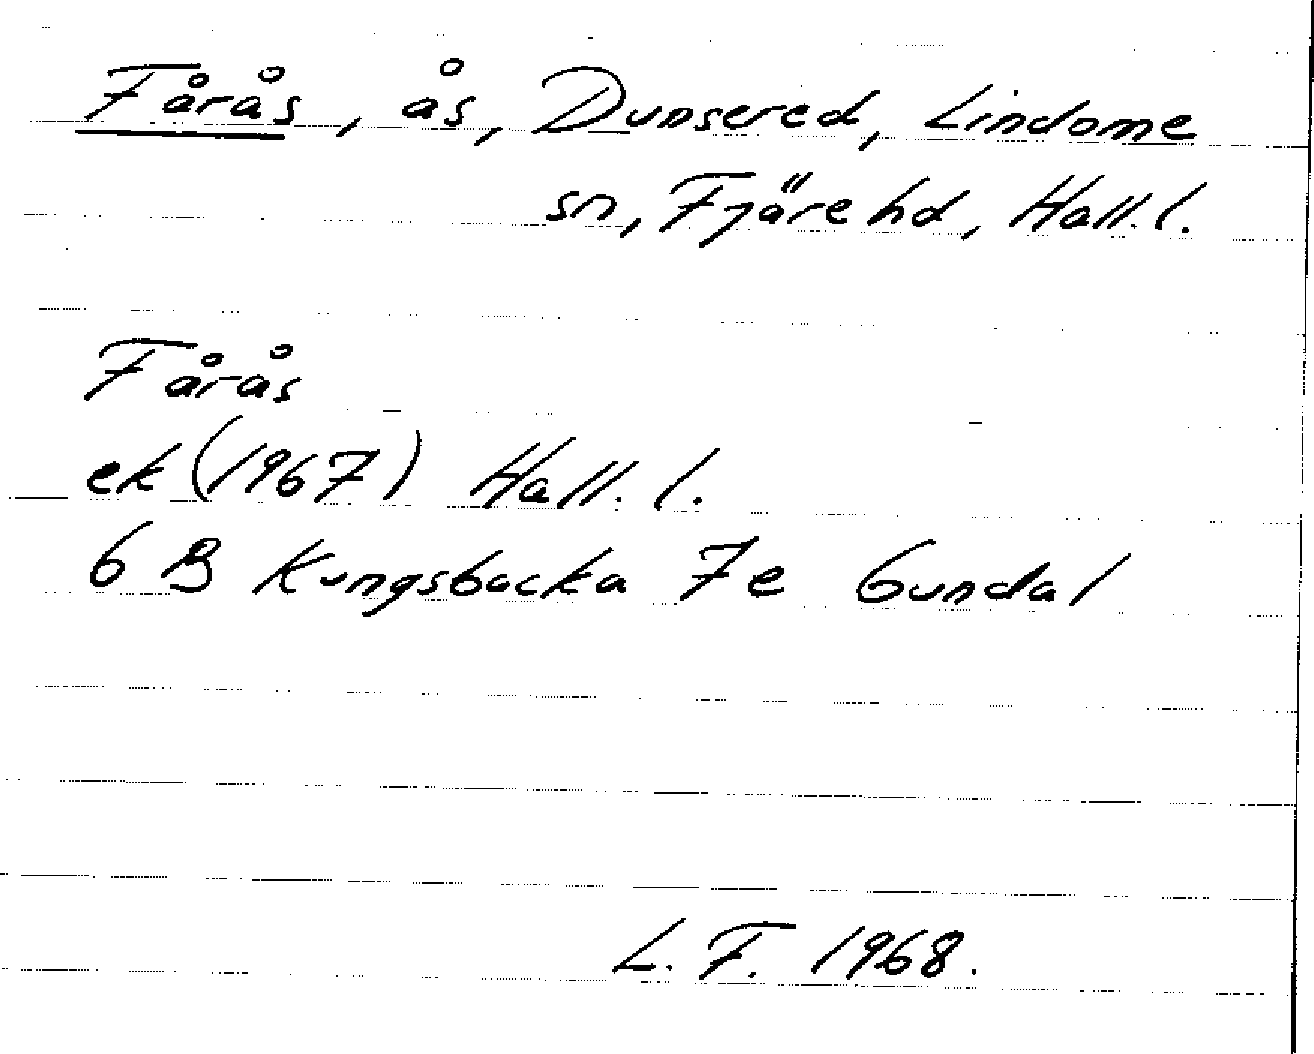 Fårås, ås, Dunsered, Lindome
sn, Fjäre hd, Hall. l.
Fårås
ek (1967) Hall. l.
6 B Kungsbacka 7e Gundal
L. F. 1968.